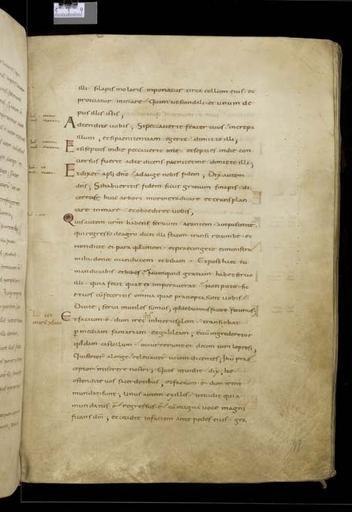 illi si lapis molaris inponatur circa collum eius et
proiciatur in mare quam ut scandalizet unum de
pusillis istis;
Adtendite vobis; Si peccaverit frater tuus increpa
illum, et si penitentiam egerit dimitte illi;
Et si septies in die peccaverit in te et septies in die con
versus fuerit ad te dicens penitet me dimitte illi;
Et dixer apli dno adauge nobis fidem; Dix autem
dns; Si haberetis fidem sicut granum sinapis di
ceretis huic arbori moro eradicare et transplan
tare in mare et oboediret vobis;
Quis autem vrm habens servum arantem aut pascente
qui regresso de agro dicet illi statim transi recumbe et
non dicet ei para quod cenem et precinge te et ministra
mihi donec manducem et bibam et post haec tu
manducabis et bibes; Numquid gratiam habet servo
illi quia fecit quae ei imperaverat non puto sic
et vos cum feceritis omnia quae precepta sunt vobis
Dicite, servi inutiles sumus, quod debuimus facere fecimus;
Et factum est dum iret in hierusalem transiebat
p mediam samariam et galileam; Et cum ingrederetur
quoddam castellum occurrerunt ei decem viri leprosi,
Qui steterunt a longe et levaverunt vocem dicentes, ihu prae
ceptor miserere nostri; Quos ut vidit dix, Ite
ostendite vos sacerdotibus, et factum est dum irent
mundati sunt, Unus autem ex illis ut vidit quia
mundatus est regressus est cum magna voce magni
ficans dm, et cecidit in faciem ante pedes eius gra